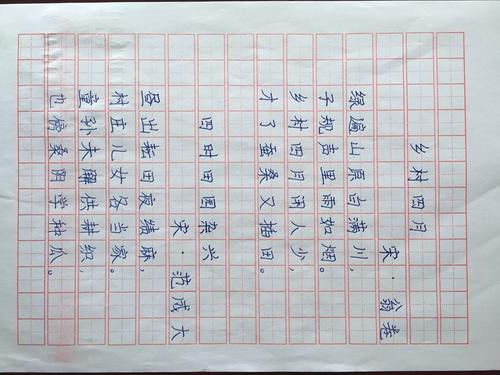 乡村四月
宋·翁卷
绿遍山原白满川,
子规声里雨如烟。
乡村四月闲人少,
才了蚕桑又插田。
四时田园杂兴
宋·范成大
昼出耘田夜绩麻,
村庄儿女各当家。
童孙未解供耕织,
也傍桑阴学种瓜。